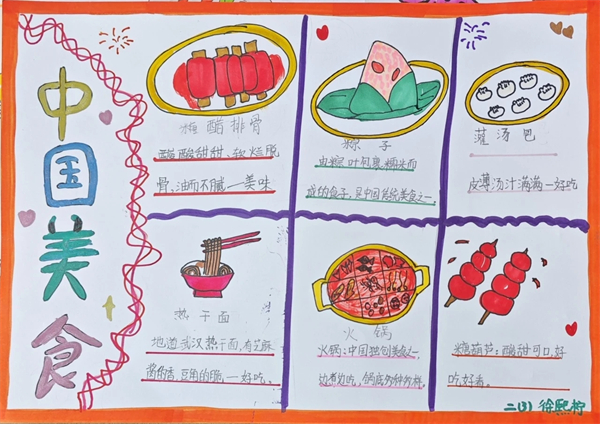 中国美食
糖醋排骨
酷酸酸甜甜、软烂脱
骨、油而不腻一美味
粽子
由粽叶包裹糯米而
成的食子,是中国传统美食之一
灌汤包
皮薄汤汁满满一好吃
热干面
地道武汉热干面,有芝麻
酱的香,豆角的脆,一好吃。
火锅
火锅:中国独创美食之一,
边煮边吃,锅底多种多样。
糖葫芦:酸甜可口,好
吃,好看。
二(3) 徐熙柠